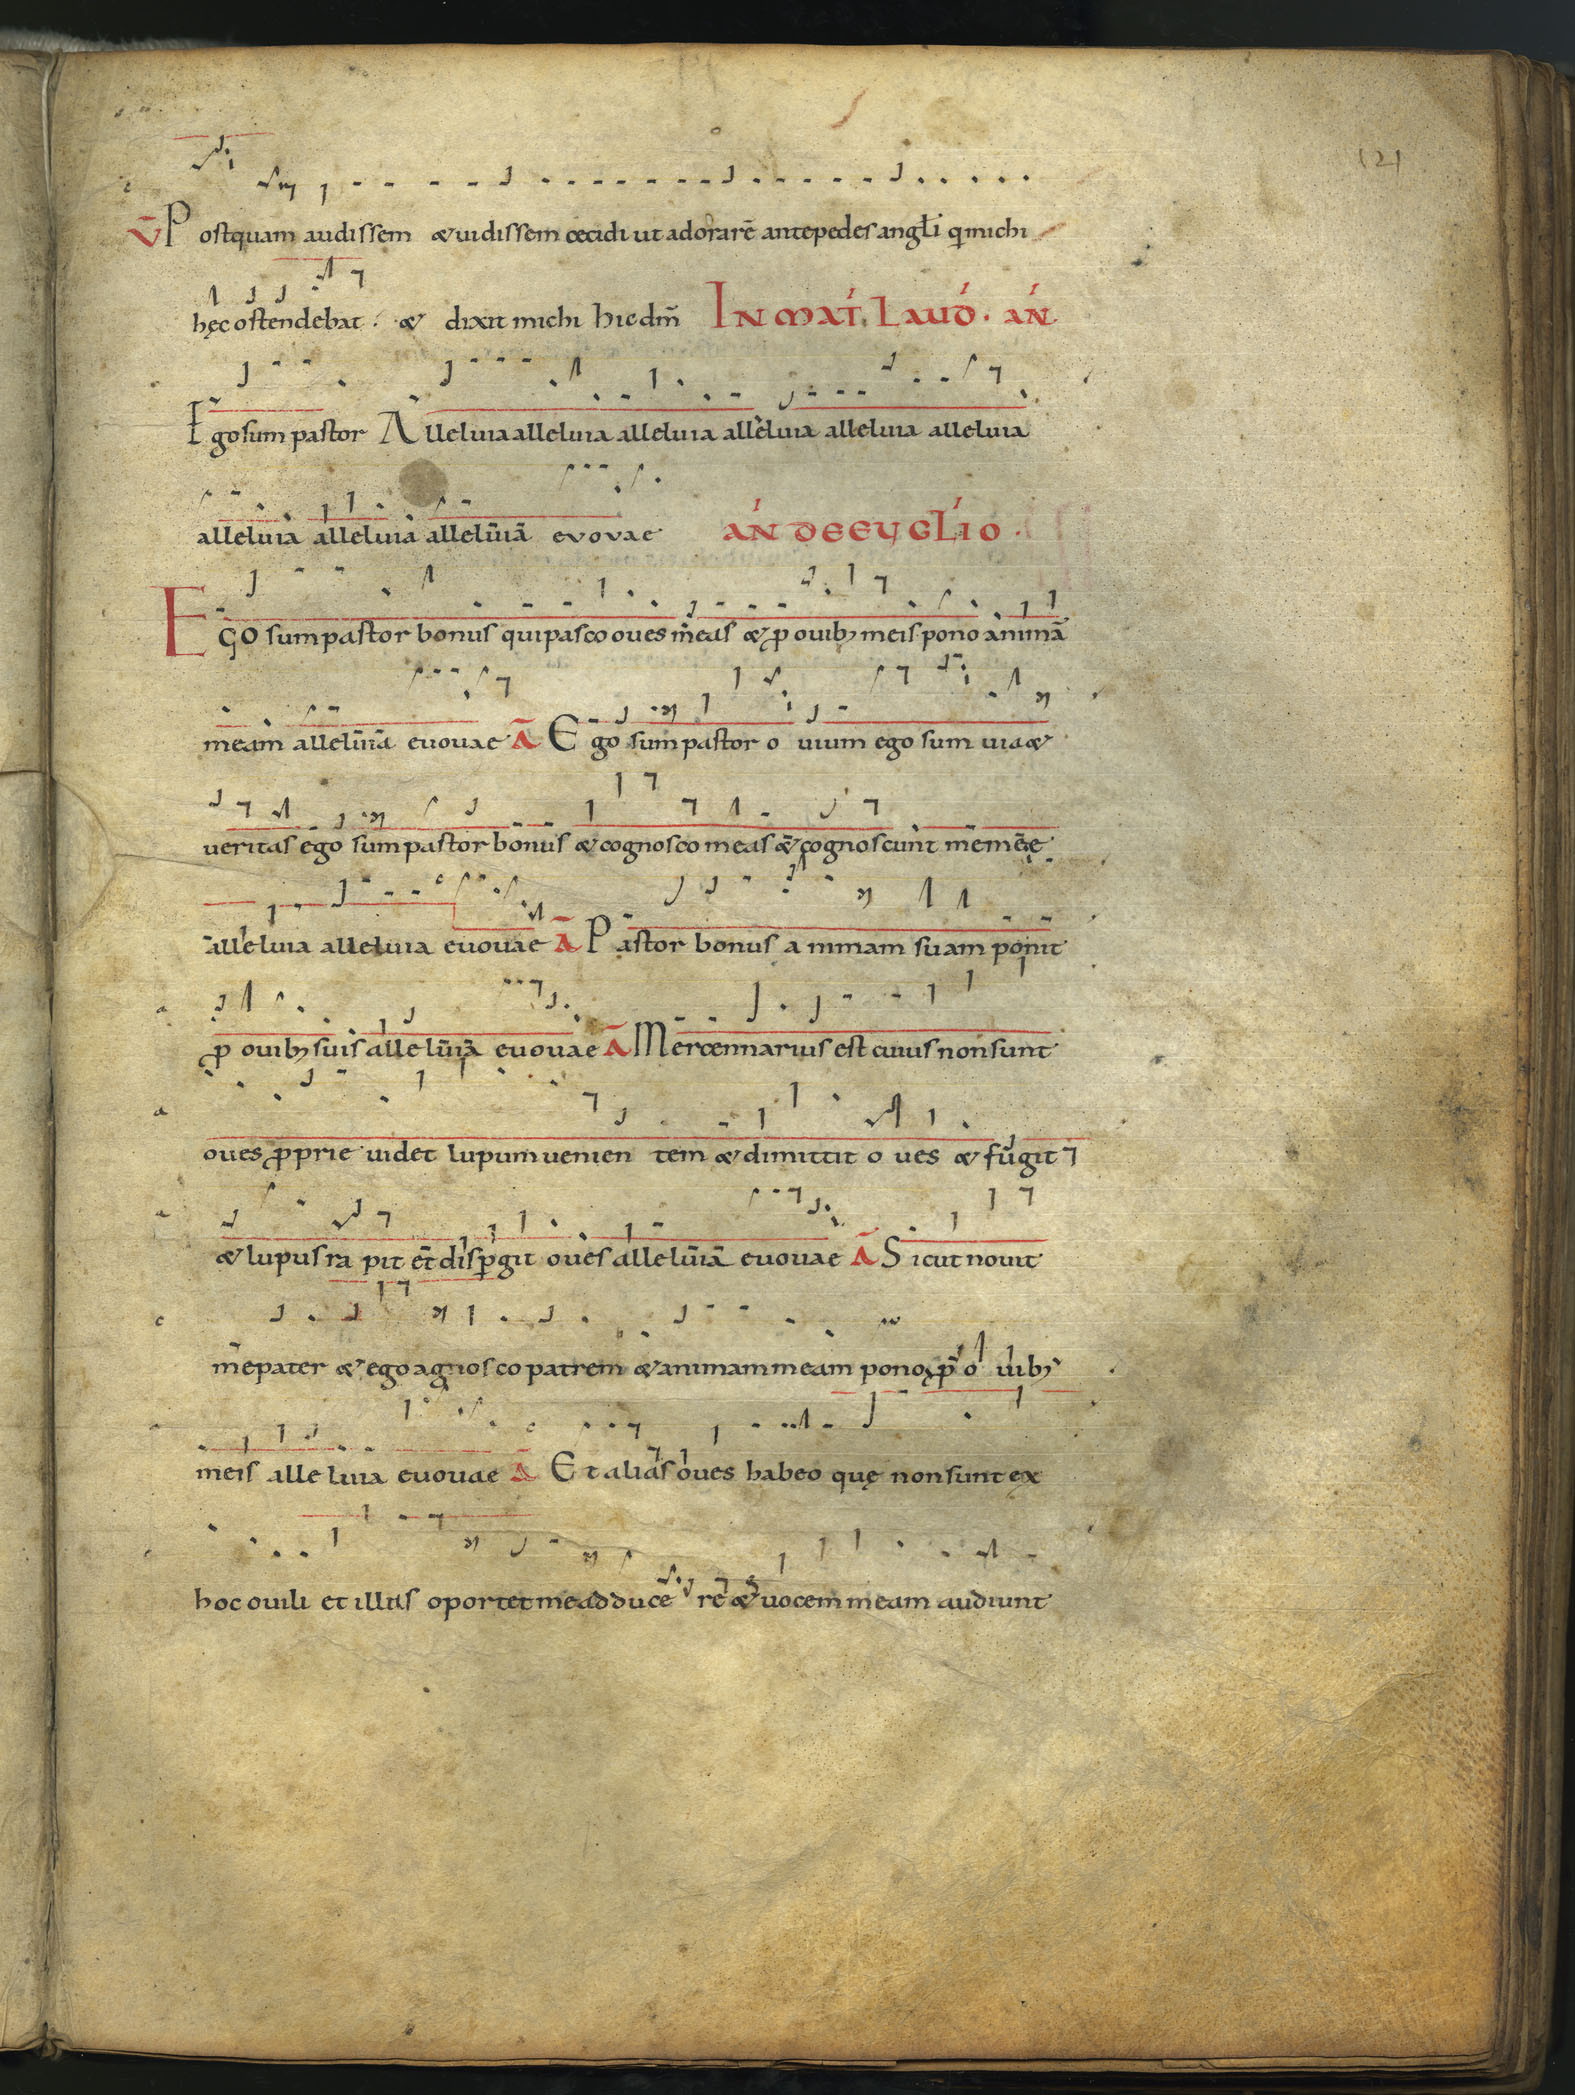 121
V̄ Postquam audissem & uidissem cecidi ut adorarē ante pedes angl̄i qi michi
hęc ostendebat. & dixit michi hiedm̄ IN MAT. LAUD. AN
Ego sum pastor Alleluia alleluia alleluia alleluia alleluia alleluia
alleluia alleluia allelūiā evovae AN DE EUGLIO.
EGO sum pastor bonus qui pasco oues meas & p ouib; meis pono animā
meam allelūiā euouae Ā Ego sum pastor ouium ego sum uia &
ueritas ego sum pastor bonus & cognosco meas & cognoscunt me meę
alleluia alleluia euouae Ā Pastor bonus animam suam ponit
p ouib; suis allelūiā euouae Ā Mercennarius est cuius non sunt
oues pprie uidet lupum uenien tem & dimittit o ues & fugit
& lupus ra pit et disp̄git oues allelūiā euouae Ā Sicut nouit
me pater & ego agnosco patrem & animam meam pono p o uib;
meis alleluia euouae Ā Et alias oues habeo quę non sunt ex
hoc ouili et illas oportet me adduce re & uocem meam audiunt